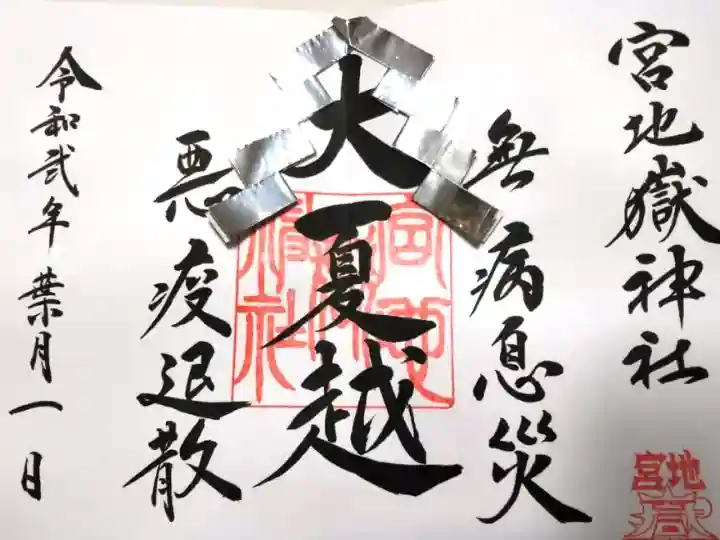 宮地嶽神社
無病息災
大夏越
悪疫退散
令和弐年葉月一日
宮地嶽神社
宮地嶽